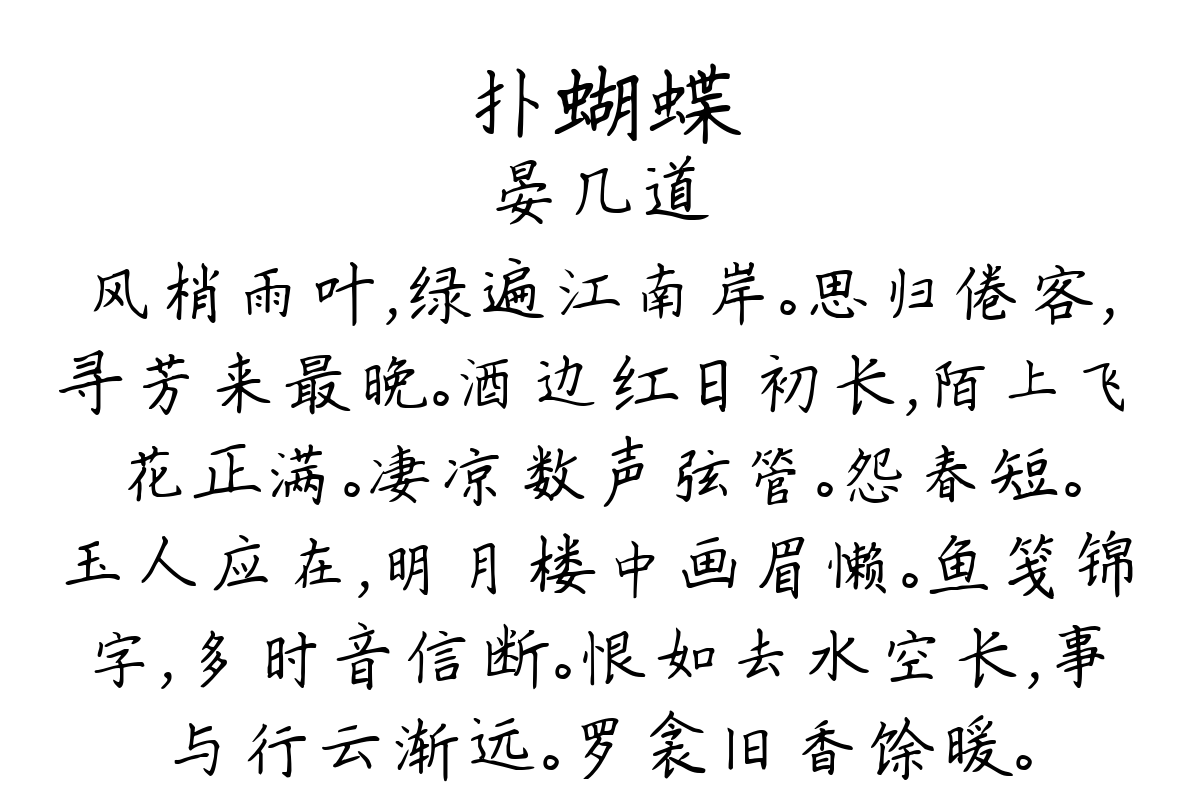 扑蝴蝶
晏几道
风梢雨叶,绿遍江南岸。思归倦客,
寻芳来最晚。酒边红日初长,陌上飞
花正满。凄凉数声弦管。怨春短。
玉人应在,明月楼中画眉懒。鱼笺锦
字,多时音信断。恨如去水空长,事
与行云渐远。罗衾旧香馀暖。